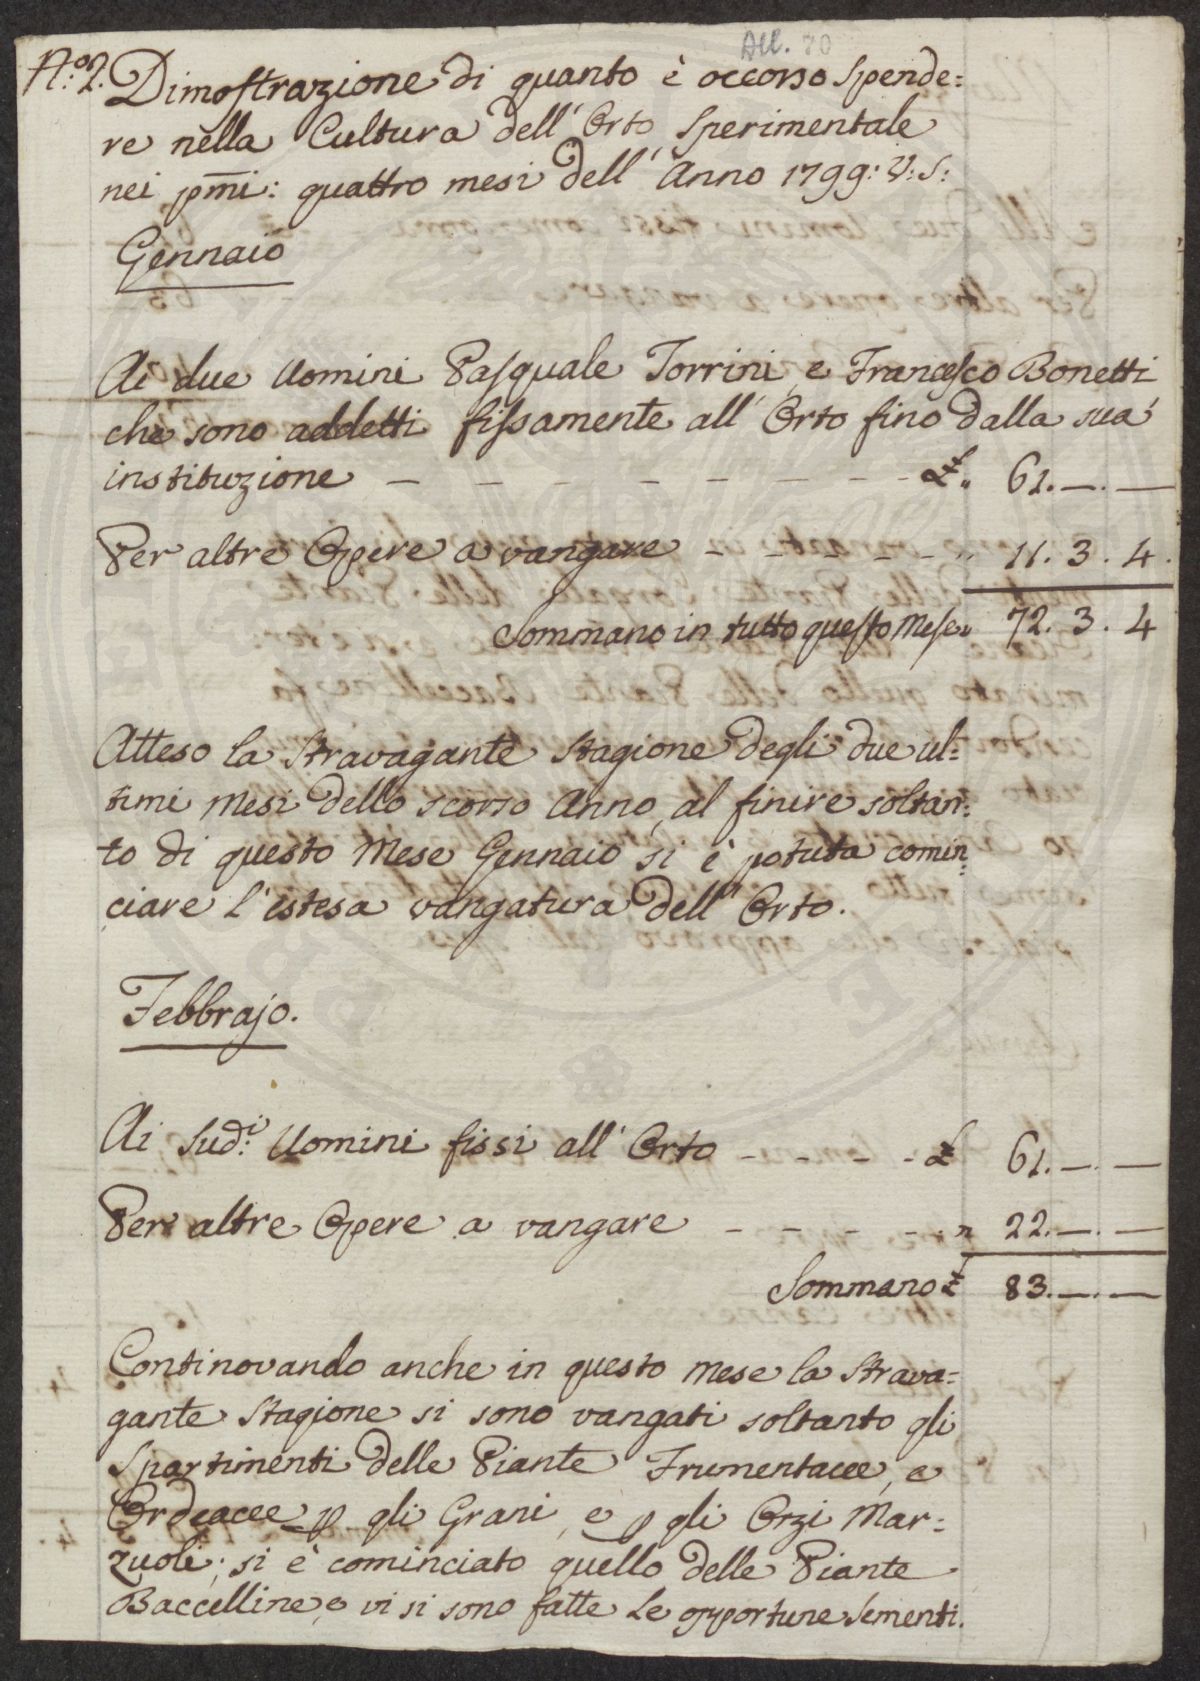 All. 70
N.º 2. Dimostrazione di quanto è occorso spende=
re nella Cultura dell' Orto Sperimentale
nei pmi: quattro mesi dell' Anno 1799: V: S:
Gennaio
Ai due Uomini Pasquale Torrini, e Francesco Bonetti
che sono addetti fissamente all' Orto fino dalla sua
instituzione — — — — — — — £. 61. —. —
Per altre Opere a vangare — — — — — „ 11. 3. 4.
Sommano in tutto questo Mese „ 72. 3. 4
Atteso la stravagante stagione degli due ul=
timi Mesi dello scorso Anno, al finire soltan=
to di questo Mese Gennaio si è potuta comin=
ciare l'estesa vangatura dell' Orto.
Febbrajo.
Ai Sud.i Uomini fissi all' Orto — — — — £ 61. —. —
Per altre Opere a vangare — — — — — „ 22. —. —
Sommano £ 83. —. —
Continovando anche in questo Mese la strava=
gante stagione si sono vangati soltanto gli
Spartimenti delle Piante Frumentacee, e
Ordeacee p gli Grani, e p gli Orzi Mar=
zuoli; si è cominciato quello delle Piante
Baccelline e vi si sono fatte le opportune sementi.